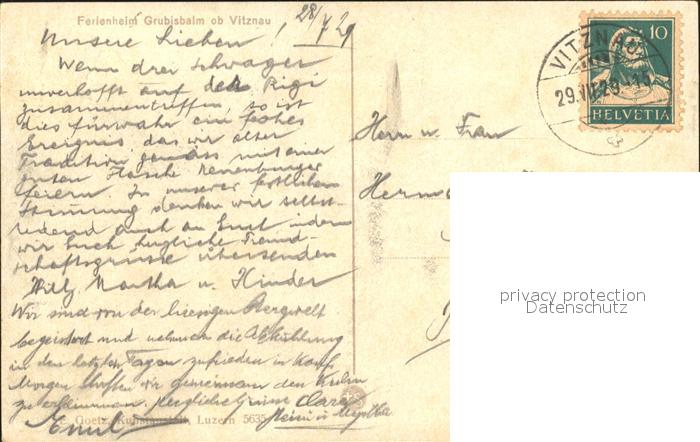 Ferienheim Grubisbalm ob Vitznau
28/7 29
Unsere Lieben!
Wenn drei Schwager
unverhofft auf der Rigi
zusammentreffen, so ist
dies fürwahr ein frohes
Ereignis, das wir alter
Tradition gemäss mit einer
guten Flasche Neuenburger
feiern. In unserer festlichen
Stimmung denken wir selbst-
redend auch an Euch indem
wir Euch herzliche Freund-
schaftsgrüsse übersenden
Willy, Martha u. Kinder
Wir sind von der hiesigen Bergwelt
begeistert und nehmen die Abkühlung
in den letzten Tagen zufrieden in Kauf.
Morgen hoffen wir gemeinsam den Kulm
zu erklimmen. Herzliche Grüsse Clara
Emil Heini u.
E. Goetz, Kunstanstalt, Luzern 5635
Herrn u. Frau
VITZNAU
29.VII.29
10
HELVETIA
privacy protection
Datenschutz